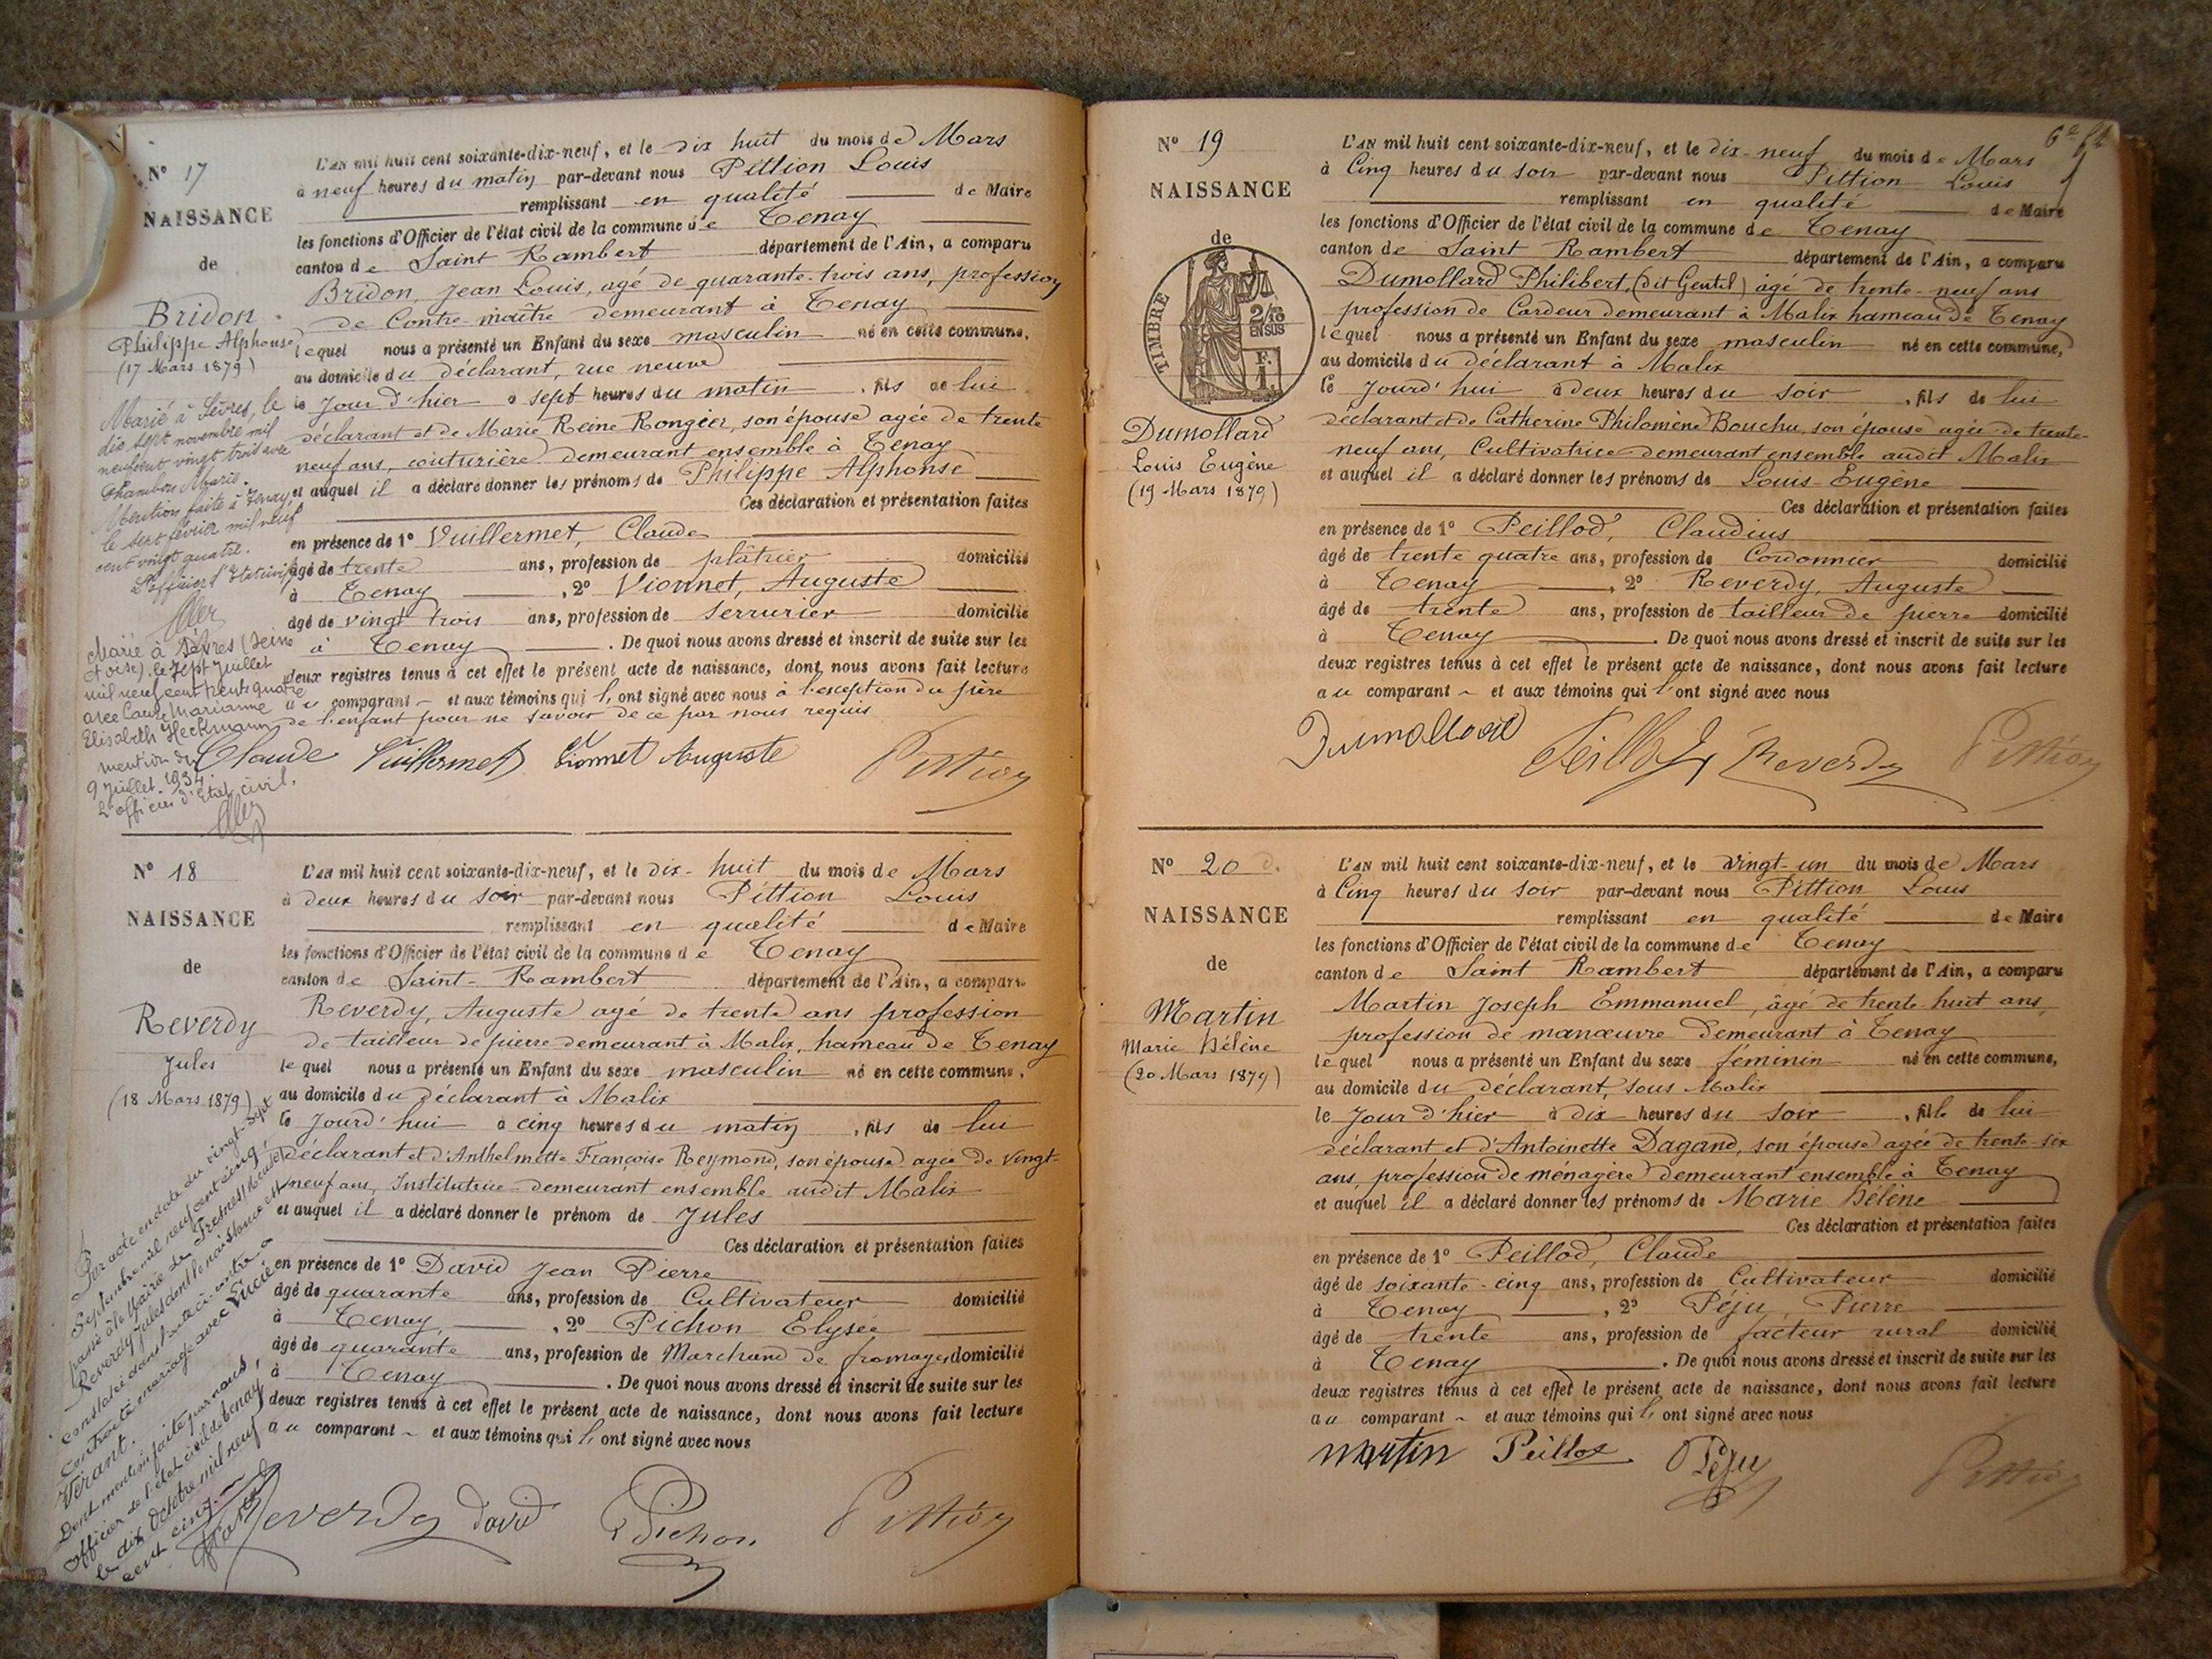 N° 17
NAISSANCE
de
Bridon
Philippe Alphonse
(17 Mars 1879)
Marié à Sèvres, le
dix sept novembre mil
neuf cent vingt trois avec
Chambon Marie.
Mention faite à Tenay,
le sept février mil neuf
cent vingt quatre.
L'officier d'Etat civil
Marié à Sèvres (Seine
et oise), le sept juillet
mil neuf cent trente quatre
avec Marianne
Elisabeth Heckmann
mention du
9 juillet 1934.
L'officier d'Etat civil.
L'AN mil huit cent soixante-dix-neuf, et le dix huit du mois de Mars
à neuf heures du matin par-devant nous Pittion Louis
remplissant en qualité de Maire
les fonctions d'Officier de l'état civil de la commune de Tenay
canton de Saint Rambert département de l'Ain, a comparu
Bridon, Jean Louis, agé de quarante-trois ans, profession
de Contre-maître demeurant à Tenay
lequel nous a présenté un Enfant du sexe masculin né en cette commune,
au domicile du déclarant, rue neuve
le Jour d'hier à sept heures du matin, fils de lui
déclarant et de Marie Reine Rongier, son épouse agée de trente
neuf ans, couturière demeurant ensemble à Tenay
et auquel il a déclaré donner les prénoms de Philippe Alphonse
Ces déclaration et présentation faites
en présence de 1° Vuillermet, Claude
âgé de trente ans, profession de plâtrier domicilié
à Tenay, 2° Vionnet, Auguste
âgé de vingt trois ans, profession de serrurier domicilié
à Tenay. De quoi nous avons dressé et inscrit de suite sur les
deux registres tenus à cet effet le présent acte de naissance, dont nous avons fait lecture
au comparant et aux témoins qui l'ont signé avec nous à l'exception du père
de l'enfant pour ne savoir de ce par nous requis
Claude Vuillermet Vionnet Auguste Pittion
N° 18
NAISSANCE
de
Reverdy
Jules
(18 Mars 1879)
Par acte en date du vingt-sept
Septembre mil neuf cent cinq,
passé à la Mairie de Fresnes (Meuse)
Reverdy Jules dont la naissance est
constatée dans l'acte ci-contre a
contracté mariage avec Lucie
Vérant.
Dont mention faite par nous,
officier de l'état civil de Tenay
le dix Octobre mil neuf
cent cinq.
L'AN mil huit cent soixante-dix-neuf, et le dix-huit du mois de Mars
à deux heures du soir par-devant nous Pittion Louis
remplissant en qualité de Maire
les fonctions d'Officier de l'état civil de la commune de Tenay
canton de Saint-Rambert département de l'Ain, a comparu
Reverdy, Auguste agé de trente ans profession
de tailleur de pierre demeurant à Malix, hameau de Tenay
lequel nous a présenté un Enfant du sexe masculin né en cette commune,
au domicile du déclarant à Malix
le Jourd'hui à cinq heures du matin, fils de lui
déclarant et d'Anthelmette Françoise Reymond, son épouse agée de vingt-
neuf ans, Institutrice demeurant ensemble audit Malix
et auquel il a déclaré donner le prénom de Jules
Ces déclaration et présentation faites
en présence de 1° David Jean Pierre
âgé de quarante ans, profession de Cultivateur domicilié
à Tenay, 2° Pichon Elysée
âgé de quarante ans, profession de Marchand de fromages domicilié
à Tenay. De quoi nous avons dressé et inscrit de suite sur les
deux registres tenus à cet effet le présent acte de naissance, dont nous avons fait lecture
au comparant et aux témoins qui l'ont signé avec nous
Reverdy David Pichon Pittion
6e ft
N° 19
NAISSANCE
de
TIMBRE
2/10
EN SUS
F.
1.
Dumollard
Louis Eugène
(19 Mars 1879)
L'AN mil huit cent soixante-dix-neuf, et le dix-neuf du mois de Mars
à Cinq heures du soir par-devant nous Pittion Louis
remplissant en qualité de Maire
les fonctions d'Officier de l'état civil de la commune de Tenay
canton de Saint Rambert département de l'Ain, a comparu
Dumollard Philibert, (dit Gentil) âgé de trente-neuf ans
profession de Cardeur demeurant à Malix hameau de Tenay
lequel nous a présenté un Enfant du sexe masculin né en cette commune,
au domicile du déclarant à Malix
le Jourd'hui à deux heures du soir, fils de lui
déclarant et de Catherine Philomène Bouchu, son épouse agée de trente-
neuf ans, Cultivatrice demeurant ensemble audit Malix
et auquel il a déclaré donner les prénoms de Louis-Eugène
Ces déclaration et présentation faites
en présence de 1° Peillod, Claudius
âgé de trente quatre ans, profession de Cordonnier domicilié
à Tenay, 2° Reverdy, Auguste
âgé de trente ans, profession de tailleur de pierre domicilié
à Tenay. De quoi nous avons dressé et inscrit de suite sur les
deux registres tenus à cet effet le présent acte de naissance, dont nous avons fait lecture
au comparant et aux témoins qui l'ont signé avec nous
Dumollard Peillod Reverdy Pittion
N° 20
NAISSANCE
de
Martin
Marie Hélène
(20 Mars 1879)
L'AN mil huit cent soixante-dix-neuf, et le vingt-un du mois de Mars
à Cinq heures du soir par-devant nous Pittion Louis
remplissant en qualité de Maire
les fonctions d'Officier de l'état civil de la commune de Tenay
canton de Saint Rambert département de l'Ain, a comparu
Martin Joseph Emmanuel, âgé de trente-huit ans,
profession de manœuvre demeurant à Tenay
lequel nous a présenté un Enfant du sexe féminin né en cette commune,
au domicile du déclarant, sous Malix
le Jour d'hier à dix heures du soir, fille de lui
déclarant et d'Antoinette Dagand, son épouse agée de trente-six
ans, profession de ménagère demeurant ensemble à Tenay
et auquel il a déclaré donner les prénoms de Marie Hélène
Ces déclaration et présentation faites
en présence de 1° Peillod, Claude
âgé de soixante-cinq ans, profession de Cultivateur domicilié
à Tenay, 2° Péju, Pierre
âgé de trente ans, profession de facteur rural domicilié
à Tenay. De quoi nous avons dressé et inscrit de suite sur les
deux registres tenus à cet effet le présent acte de naissance, dont nous avons fait lecture
au comparant et aux témoins qui l'ont signé avec nous
Martin Peillod Péju Pittion